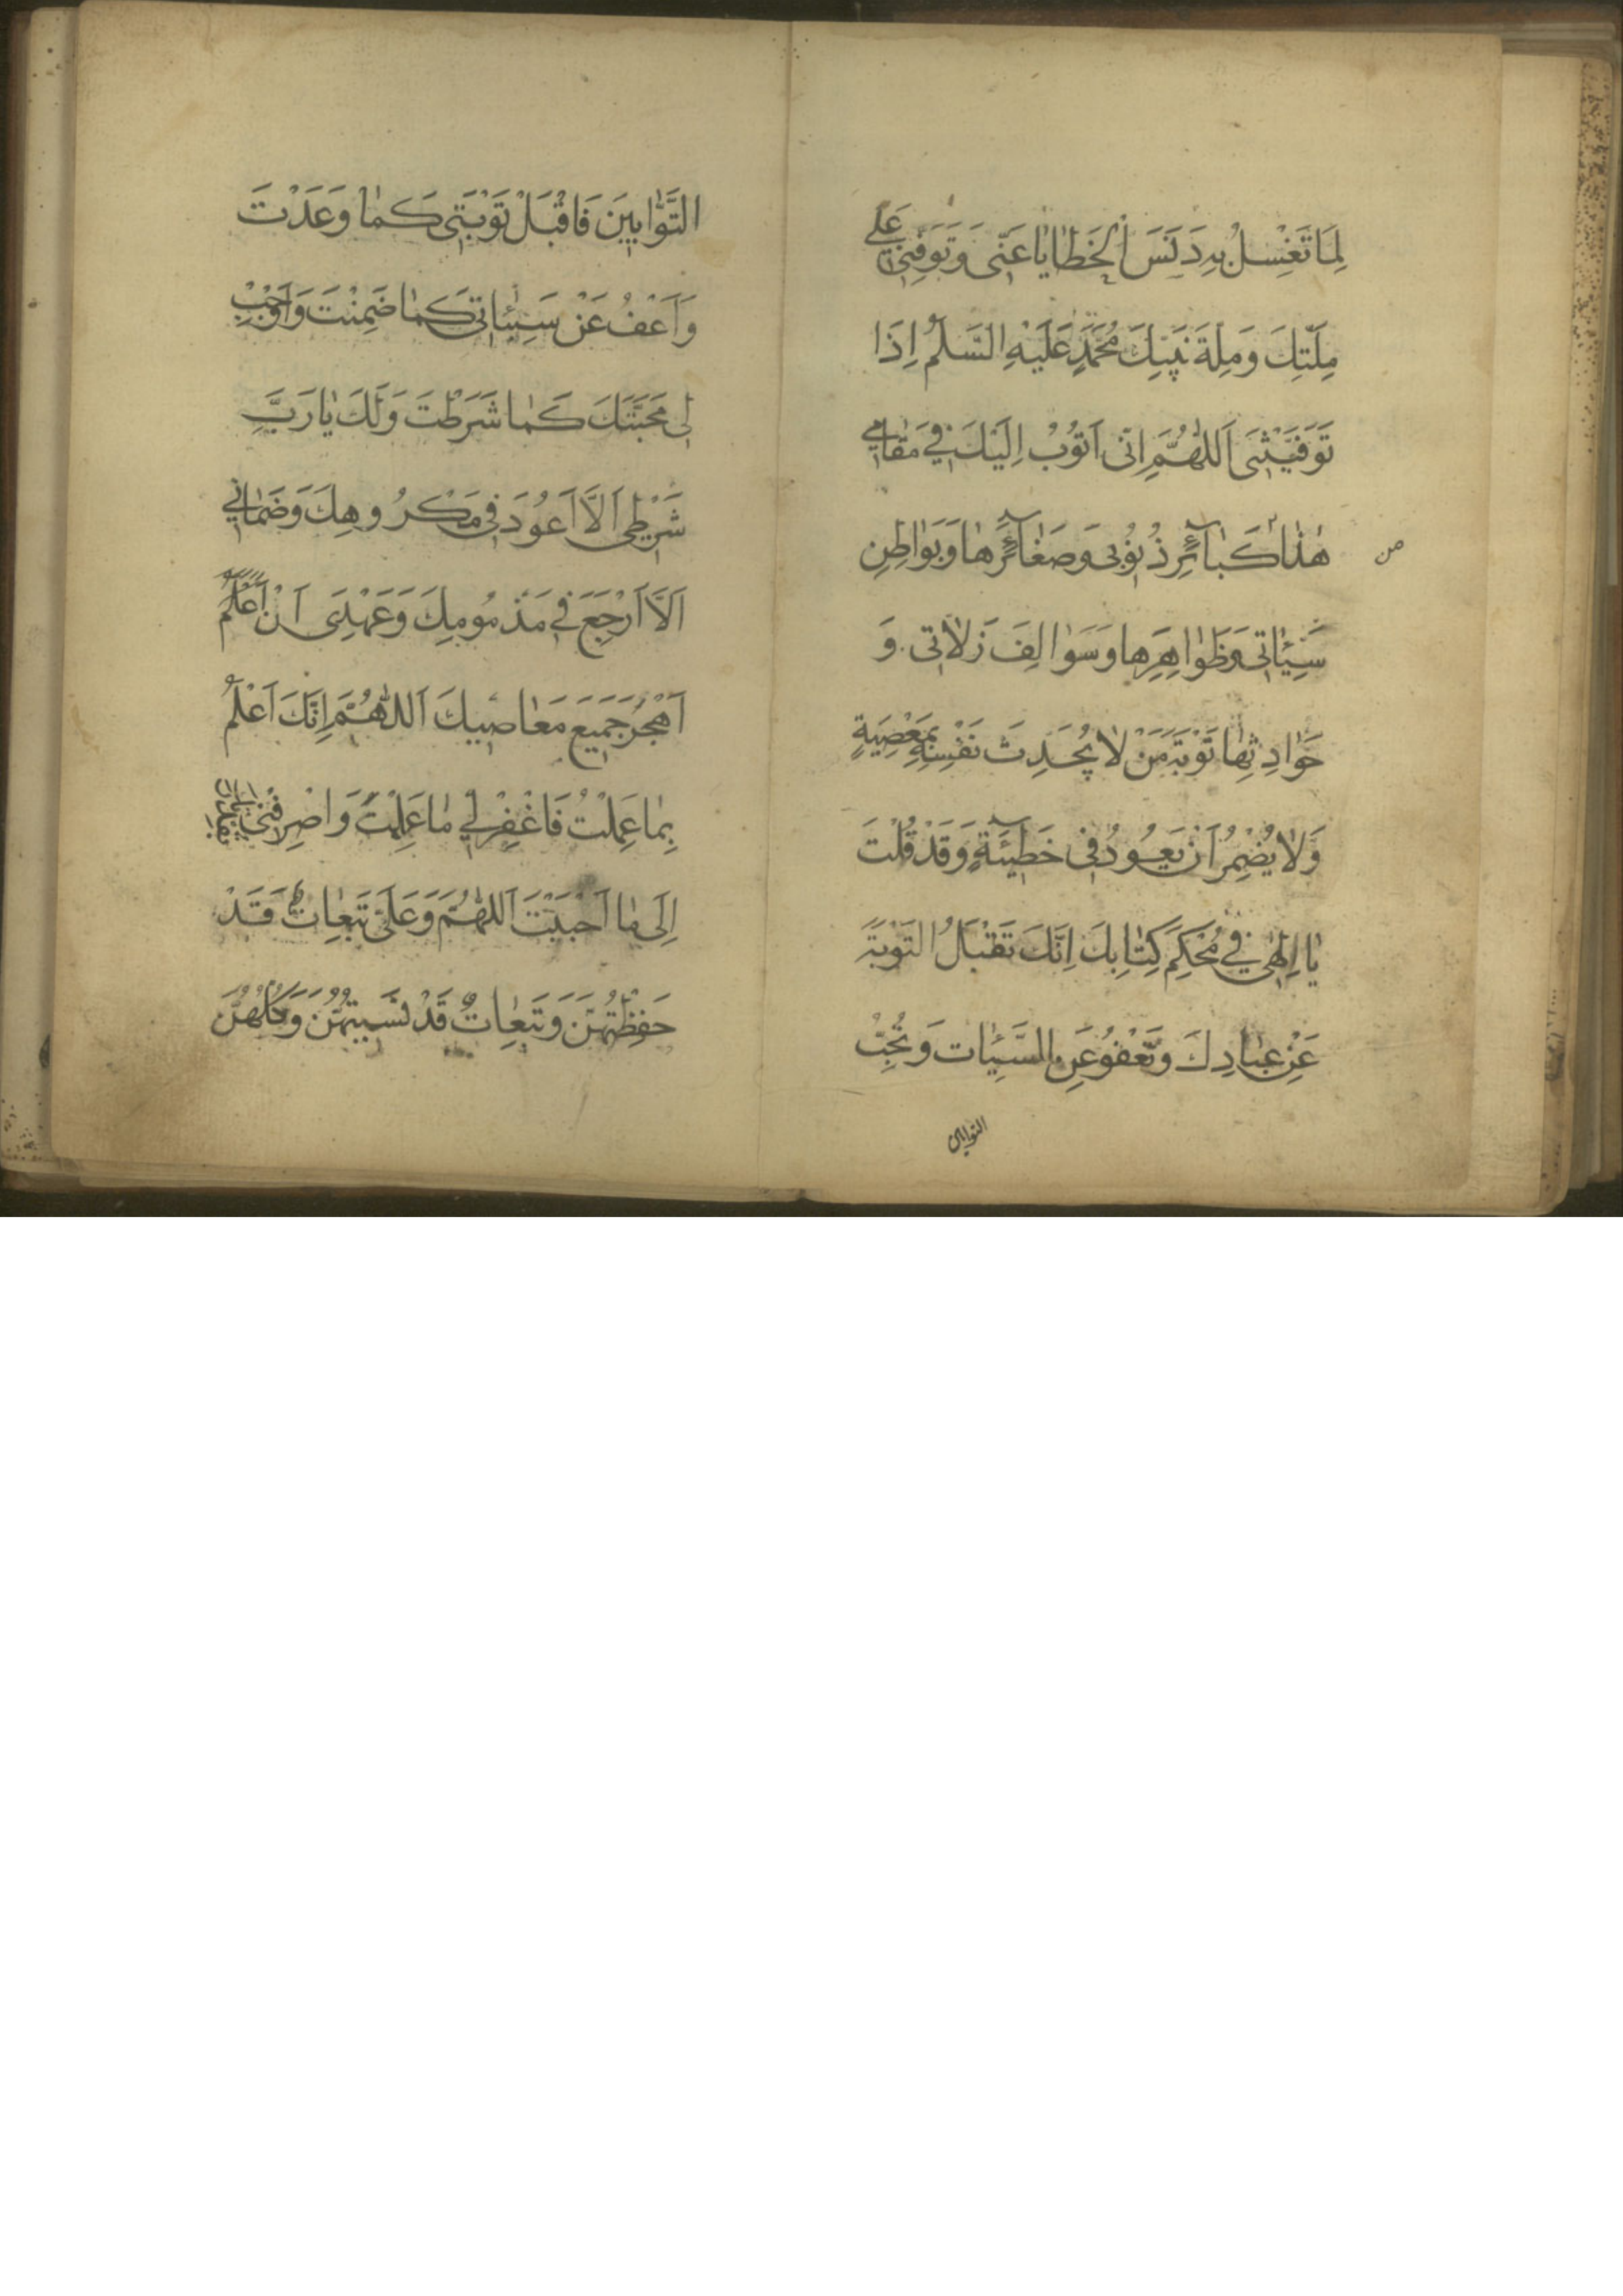 لِمَا تَغْسِلُ بِهِ دَنَسَ الْخَطَايَا عَنِّي وَتَوَفَّنِي عَلَى
مِلَّتِكَ وَمِلَّةِ نَبِيِّكَ مُحَمَّدٍ عَلَيْهِ السَّلَمُ إِذَا
تَوَفَّيْتَنِي اَللَّهُمَّ اِنِّي اَتُوبُ اِلَيْكَ فِي مَقَامِي
هٰذَا كَبَآئِرِ ذُنُوبِي وَصَغَآئِرِهَا وَبَوَاطِنِ
من
سَيِّئَاتِي وَظَوَاهِرِهَا وَسَوَالِفَ زَلَاتِي وَ
حَوَادِثِهَا تَوْبَةَ مَنْ لَا يُحَدِثُ نَفْسَهُ بِمَعْصِيَةٍ
وَلَا يُضْمِرُ اَنْ يَعُودُ فِي خَطِيئَةٍ وَقَدْ قُلْتَ
يَا اِلٰهِي فِي مُحْكَمِ كِتَابِكَ اِنَّكَ تَقْبَلُ التَّوْبَةَ
عَنْ عِبَادِكَ وَتَعْفُو عَنِ السَّيِّئَاتِ وَتُحِبُّ
التوابين
التَّوَّابِينَ فَاقْبَلْ تَوْبَتِي كَمَا وَعَدْتَ
وَاَعْفُ عَنْ سَيِّئَاتِي كَمَا ضَمِنْتَ وَاَوْجِبْ
لِي مَحَبَّتَكَ كَمَا شَرَطْتَ وَلَكَ يَا رَبِّ
شَرْطِي اَلَّا اَعُودَ فِي مَكْرُوهِكَ وَضَمَانِي
اَلَّا اَرْجِعَ فِي مَذْمُومِكَ وَعَهْدِي اَنْ
اَهْجُرَ جَمِيعَ مَعَاصِيكَ اَللَّهُمَّ اِنَّكَ اَعْلَمُ
بِمَا عَمِلْتُ فَاغْفِرْ لِي مَا عَلِمْتَ وَاصْرِفْنِي بِقُدْرَتِكَ
اِلَى مَا اَحْبَبْتَ اَللَّهُمَّ وَعَلَيَّ تَبِعَاتٌ قَدْ
حَفِظْتُهُنَّ وَتَبِعَاتٌ قَدْ نَسِيتُهُنَّ وَكُلُّهُنَّ